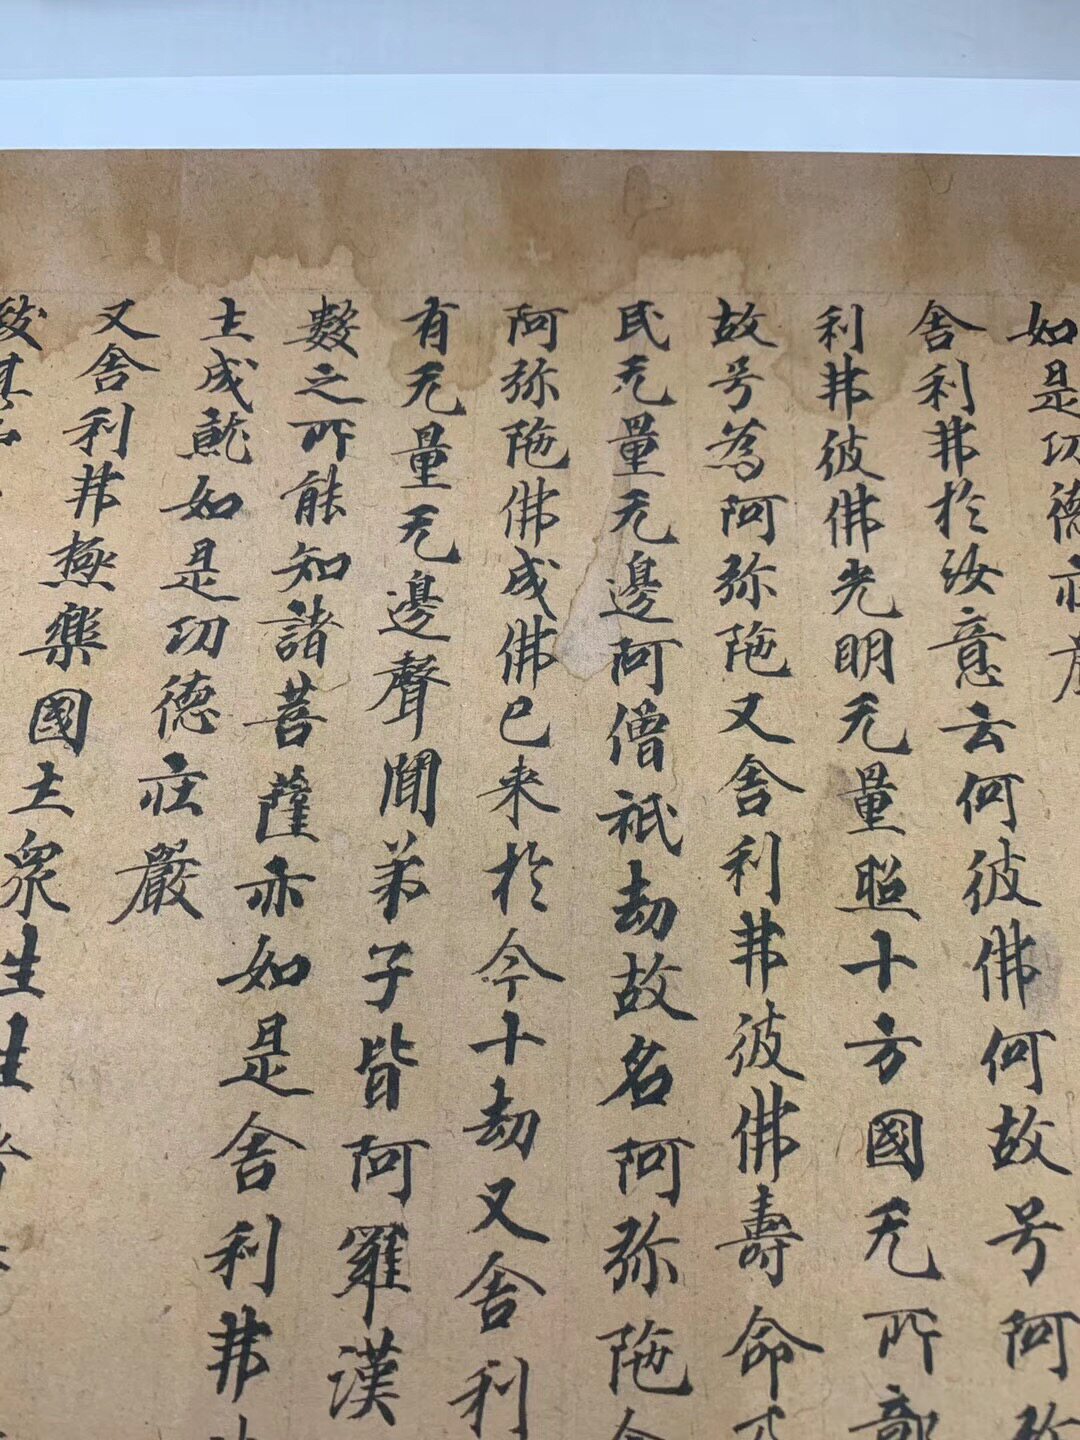 如是功德
舍利弗於汝意云何彼佛何故号阿弥
利弗彼佛光明无量照十方國无所部
故号為阿弥陁又舍利弗彼佛壽命
民无量无邊阿僧祇劫故名阿弥陁
阿弥陁佛成佛已来於今十劫又舍利
有无量无邊聲聞弟子皆阿羅漢
數之所能知諸菩薩亦如是舍利弗
土成就如是功德莊嚴
又舍利弗極樂國土衆生生者